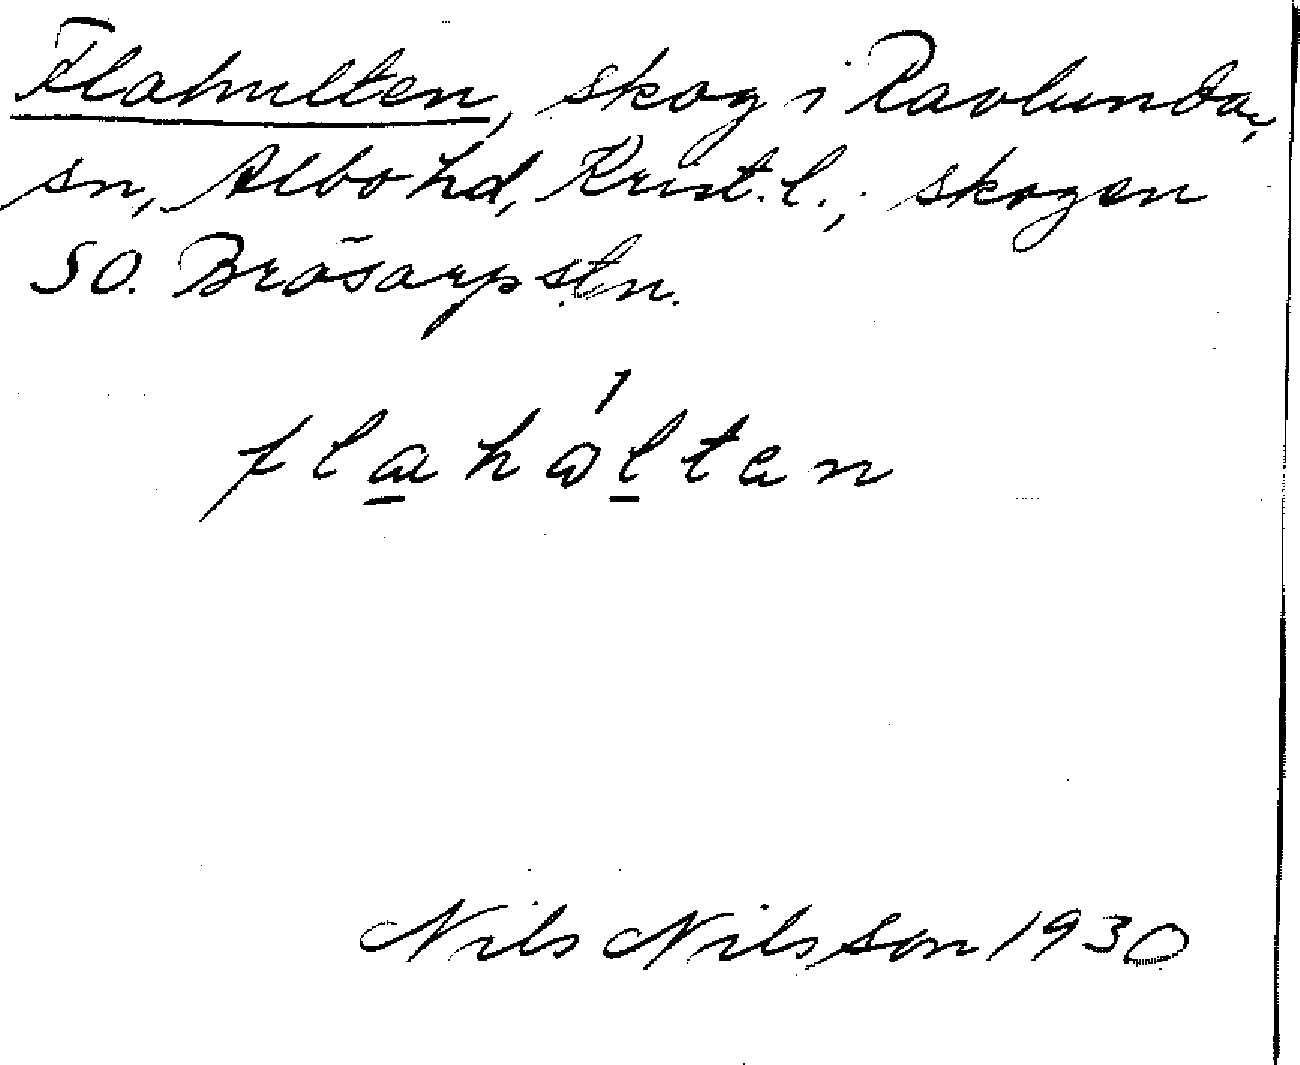 Flahulten, skog i Ravlunda,
sn, Albo hd, Krist. l., skogen
SO. Brösarp stn.
flahålten
Nils Nilsson 1930